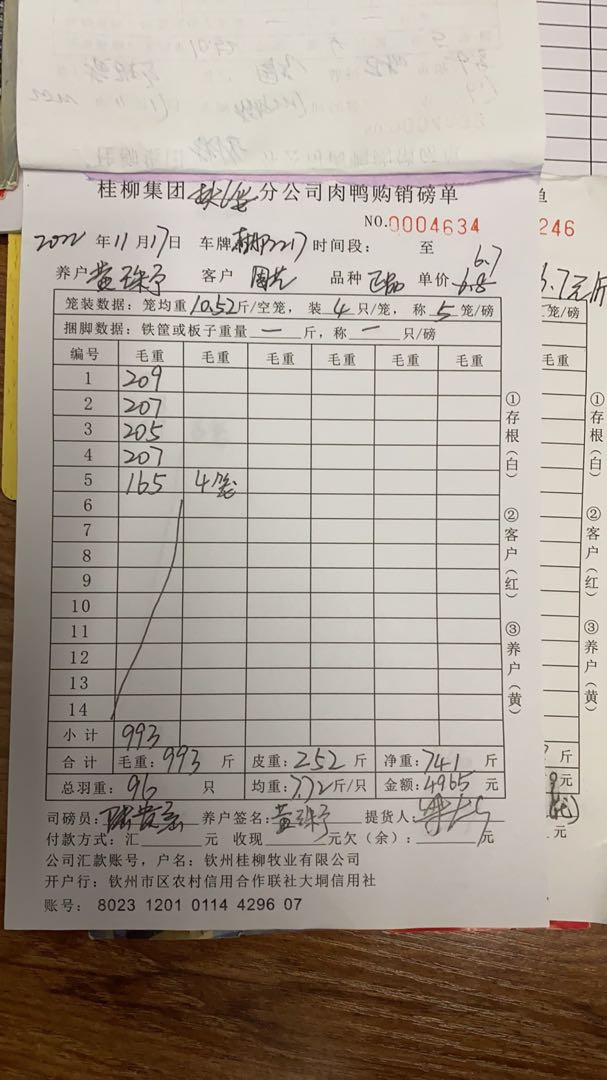 桂柳集团 分公司肉鸭购销磅单
单
NO.0004634
246
2022 年 11 月 17 日 车牌 2217 时间段: 至
6.7
养户 黄 客户 周 品种 正品 单价 6.8
6.7元/斤
笼装数据: 笼均重 10.52 斤/空笼, 装 4 只/笼, 称 5 笼/磅
笼/磅
捆脚数据: 铁筐或板子重量 一 斤, 称 一 只/磅
编号 毛重 毛重 毛重 毛重 毛重 毛重
毛重
1 209
2 207
3 205
4 207
5 165 4笼
6
7
8
9
10
11
12
13
14
小计 993
合计 毛重: 993 斤 皮重: 252 斤 净重: 741 斤
斤
总羽重: 96 只 均重: 7.72 斤/只 金额: 4965 元
元
司磅员: 养户签名: 黄 提货人:
付款方式: 汇 元 收现 元欠(余): 元
元
公司汇款账号, 户名: 钦州桂柳牧业有限公司
开户行: 钦州市区农村信用合作联社大垌信用社
账号: 8023 1201 0114 4296 07
①存根(白)
②客户(红)
③养户(黄)
①存根(白)
②客户(红)
③养户(黄)